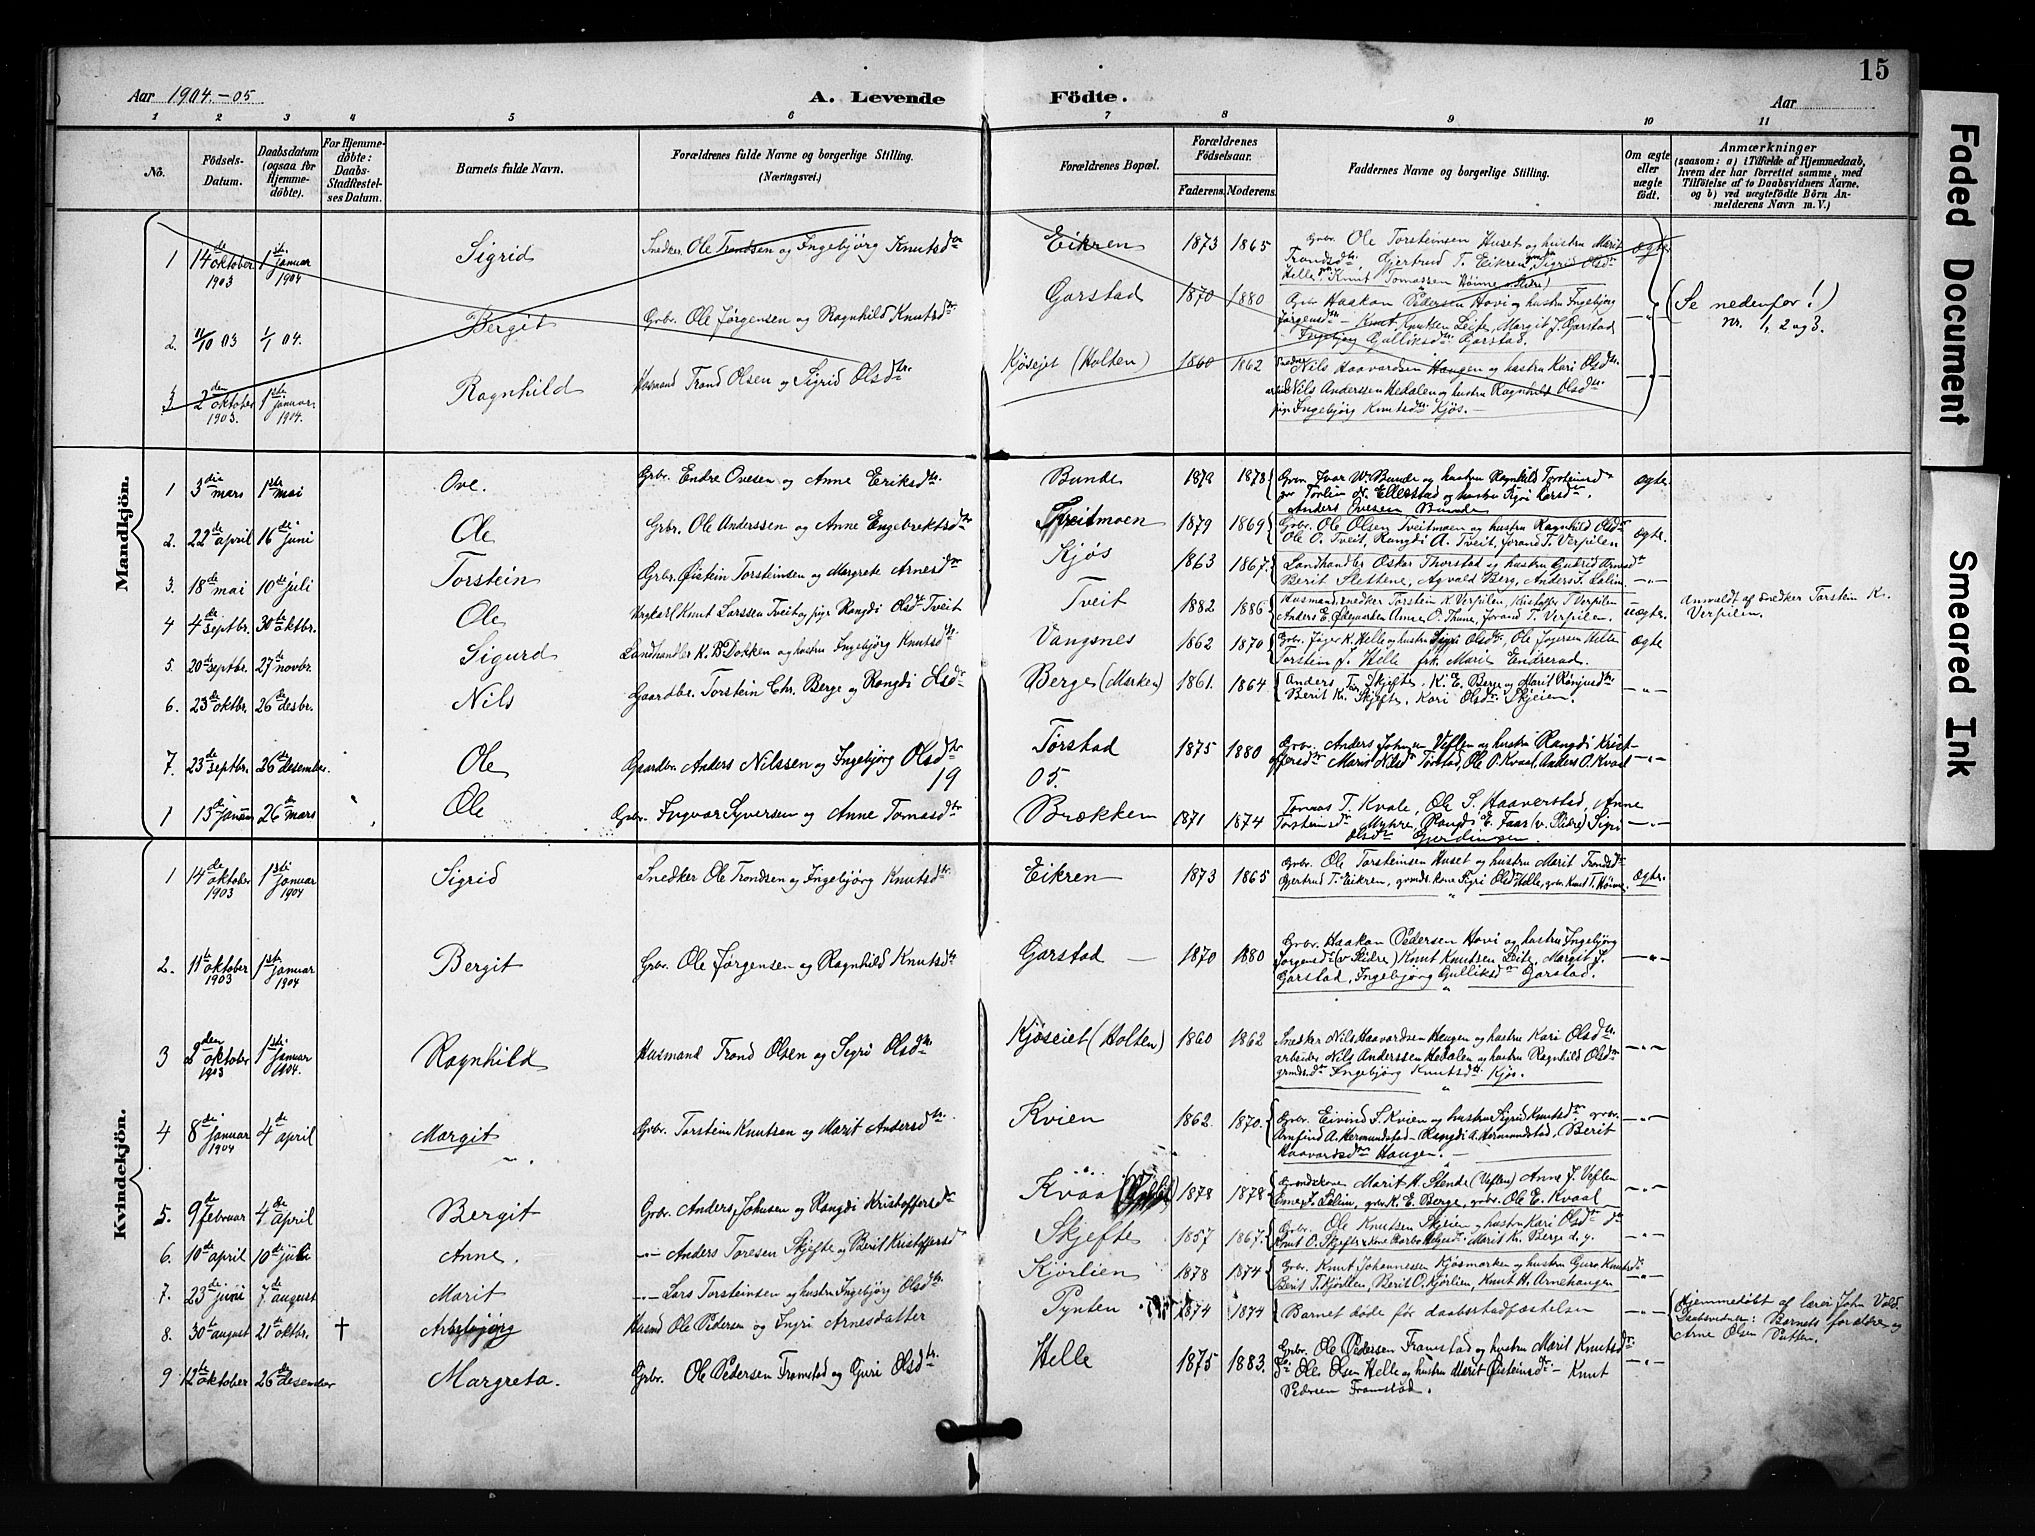 15
Aar 1904.-05
A. Levende Födte.
Aar
1 2 3 4 5 6 7 8 9 10 11
No.
Födsels-Datum.
Daabsdatum (ogsaa for Hjemmedøbte).
For Hjemmedøbte: Daabs-Stadfæstelses Datum.
Barnets fulde Navn.
Forældrenes fulde Navne og borgerlige Stilling.
(Næringsvei.)
Forældrenes Bopæl.
Forældrenes Födselsaar.
Faderens. Moderens.
Faddernes Navne og borgerlige Stilling.
Om ægte eller uægte födt.
Anmærkninger
(saasom: a) i Tilfælde af Hjemmedaab,
hvem der har forrettet samme, med
Tilföielse af to Daabsvidners Navne.
og b) ved uægtefödte Börn Anmelderens Navn m. V.)
1 14de oktober 1903 1ste januar 1904 Sigrid Snedker Ole Trondsen og Ingebjørg Knutsdtr Eikren 1873 1865 Grbr. Ole Torsteinsen Huset og hustru Marit
Trondsdtr. Gjertrud T. Eikren, Sigrid Olsdtr
Helle, Knut Tomassen Høime ægte
2. 11/10 03 1/1 04. Bergit Grbr. Ole Jørgensen og Ragnhild Knutsdtr Garstad 1870 1880 Grbr Haakon Pedersen Hovi og hustru Ingebjørg
Jørgensdtr – Knut Knutsen Leite, Margit J. Garstad
Ingebjørg Gulliksdtr Garstad. -"-
(Se nedenfor!)
nr. 1, 2 og 3.
3 2den oktober 1903. 1ste januar 1904. Ragnhild Husmand Trond Olsen og Sigrid Olsdtr. Kjøseiet (Holten) 1860 1862 Nils Haavardsen Haugen og hustru Kari Olsdtr.
Nils Anderssen Hedalen og hustru Ragnhild Olsdtr.
pige Ingebjørg Knutsdtr. Kjøs. – -"-
Mandkjön.
1 3die mars 1ste mai Ove. Grbr. Endre Ovesen og Anne Eriksdtr. Bunde 1879 1878 Grbr. Ivar Bunde og hustru Ragnhild Torsteinsdtr
Torlin N. Ellestad og hustru
Anders Ovesen Bunde ægte.
2. 22de april 16de juni Ole Grbr. Ole Anderssen og Anne Engebrektsdtr Tveitmoen 1879 1869 Grbr. Ole Olsen Tveitmoen og hustru Ragnhild Olsdtr
Ole O. Tveit, Rangdi A. Tveit, Jorand T. Verpilen ægte.
3. 18de mai 10de juli Torstein Grbr. Øistein Torsteinsen og Margrete Arnesdtr Kjøs 1863 1867. Landhandler Oskar Thorstad og hustru
Berit Slettene, Agvald Berg, Anders J. Lalim -"-
4 4de septbr. 30te oktbr. Ole Ungkarl Knut Larssen Tveit og pige Rangdi Olsdtr Tveit Tveit 1882 1886 Husmand, snedker Torstein K. Verpilen, Kristoffer T. Verpilen
Anders E. Ødegaarden Anne O. Thune, Jorand T. Verpilen. uægte. Anmeldt af snedker Torstein K.
Verpilen.
5. 20de septbr. 27de novbr. Sigurd Landhandler K. B. Dokken og hustru Ingebjørg Knutsdtr. Vangsnes 1862 1870 Grbr. K. Helle og hustru Sigri Olsdtr. Ole Helle
Torstein J. Helle frk. Marie Endrerud. ægte
6. 23de oktbr. 26de desbr. Nils Gaardbr. Torstein Chr. Berge og Rangdi Olsdtr Berge (Marken) 1861. 1864 Anders T. Skjefte. K. E. Berge og Marit
Berit K. Skjefte. Kari Olsdtr. Skjeien. -"-
7. 23de septbr. 26de desember. Ole Gaardbr. Anders Nilssen og Ingebjørg Olsdtr Torstad 1875 1880 Grbr. Anders Johnsen Veflen og hustru Rangdi Krist-
offersdtr Marit Nilsdtr Torstad, Ole P. Kvaal, Anders O. Kvaal -"-
19 05.
1 13de januar 26de mars Ole Grbr. Ingvar Syversen og Anne Tomasdtr Brækken 1871 1874 Tomas T. Kvale, Ole S. Haaverstad, Anne
Torsteinsdtr Myhre, Rangdi E. Faar (v. Slidre) Sigri
Olsdtr Gjerdingen. -"-
Kvindekjön.
1 14de oktober 1903 1ste januar 1904 Sigrid Snedker Ole Trondsen og Ingebjørg Knutsdtr. Eikren 1873 1865 Grbr. Ole Torsteinsen Huset og hustru Marit Trondsdtr
Gjertrud T. Eikren, grmds. kone Sigri Olsdtr Helle, grbr. Knut T. Høime. ægte.
2. 11te oktober 1903 1ste januar 1904 Bergit Grbr. Ole Jørgensen og Ragnhild Knutsdtr Garstad – 1870 1880 Grbr. Haakon Pedersen Hovi og hustru Ingebjørg
Jørgensdtr (v. Slidre) Knut Knutsen Leite, Margit J.
Garstad, Ingebjørg Gulliksdtr Garstad. -"-
3 2den oktober 1903 1ste januar 1904. Ragnhild Husmand Trond Olsen og Sigri Olsdtr Kjøseiet (Holten) 1860 1862 Snedker Nils Haavardsen Haugen og hustru Kari Olsdtr.
arbeider Nils Anderssen Hedalen og hustru Ragnhild Olsdtr
grmds.dtr Ingebjørg Knutsdtr. Kjøs. -"-
4 8de januar 1904 4de april Margit Grbr. Torstein Knutsen og Marit Andersdtr. Kvien 1862. 1870. Grbr. Eivind S. Kvien og hustru Sigrid Knutsdtr grbr.
Arnfind A. Hermundstad – Rangdi A. Hermundstad, Berit
Haavardsdtr Haugen. – -"-
5. 9de februar 4de april Bergit Grbr. Anders Johnsen og Rangdi Kristoffersdtr Kvaa 1878 1878 Grmdskone Marit H. Slende (Veflen) Anne J. Veflen
J. Lalim, grbr. K. E. Berge, grbr. Ole E. Kvaal -"-
6. 10de april 10de juli Anne. -"- Anders Toresen Skjefte og Berit Kristoffersdtr Skjefte 1857 1867. Grbr. Ole Knutsen Skjeien og hustru Kari Olsdtr
Knut O. Skjefte Marit K. Berge d. y. -"-
7. 23de juni 7de august Marit -"- Lars Torsteinsen og hustru Ingebjørg Olsdtr. Kjørlien 1878 1874 Grbr. Knut Johannessen Kjøsmarken og hustru Guro Knutsdtr
Berit T. Kjørlien, Berit O. Kjørlien, Knut H. Arnehaugen -"-
8. 30te august 21de oktbr. † Husmd Ole Pedersen og Ingri Arnesdatter Pynten 1874 1874 Barnet døde før daabsstadfæstelsen -"- Hjemmedøbt af lærer John Vold.
Daabsvidner: Barnets forældre og
Arne Olsen
9 12te oktober 26de desember Margreta. Grbr. Ole Pedersen Framstad og Guri Olsdtr. Helle 1875 1883. Grbr. Ole Pedersen Framstad og hustru Marit Knutsdtr.
Ole Olsen Helle og hustru Marit Øisteinsdtr – Knut
Pedersen Framstad. -"-
Faded Document
Smeared Ink